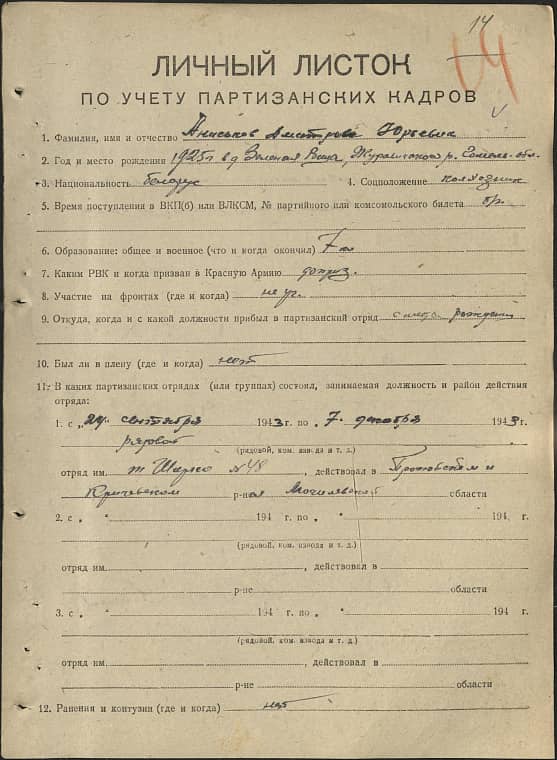 14
14
ЛИЧНЫЙ ЛИСТОК
ПО УЧЕТУ ПАРТИЗАНСКИХ КАДРОВ
1. Фамилия, имя и отчество Аниськов Дмитрий Юрьевич
2. Год и место рождения 1925 г. в д. Зеленая Гомель. обл.
3. Национальность белорус 4. Соцположение колхозник
5. Время поступления в ВКП(б) или ВЛКСМ, № партийного или комсомольского билета
6. Образование: общее и военное (что и когда окончил) 7 кл
7. Каким РВК и когда призван в Красную Армию доприз.
8. Участие на фронтах (где и когда) не уч.
9. Откуда, когда и с какой должности прибыл в партизанский отряд с места рождения
10. Был ли в плену (где и когда) нет
11. В каких партизанских отрядах (или группах) состоял, занимаемая должность и район действия
отряда:
1. с „24. сентября 1943 г. по „7. декабря 1943 г.
рядовой
(рядовой, ком. взвода и т. д.)
отряд им. № 48, действовал в и
Кричевском р-ная Могилевской области
2. с „ " 194 г. по „ " 194 г.
(рядовой, ком. взвода и т. д.)
отряд им. , действовал в
р-не области
3. с „ " 194 г. по „ " 194 г.
(рядовой, ком. взвода и т. д.)
отряд им. , действовал в
р-не области
12. Ранения и контузии (где и когда) нет